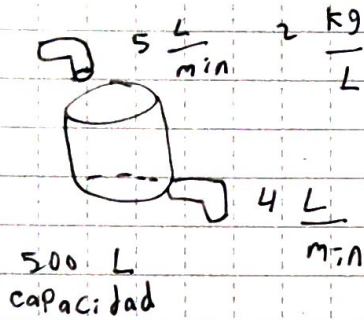 5 L/min 2 kg/L
4 L/min
500 L
capacidad